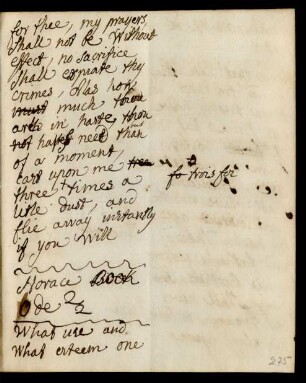 for thee, my prayers
shall not be without
effect, no sacrifice
shall expiate thy
crimes, Alas how
must much thou
art in haste, thou
not hast need than
of a moment,
cast upon me
three times a
litle dust, and
flie away instantly
if you will
fo trois foi
Horace Book
Ode 22
What use and
what esteem one
275